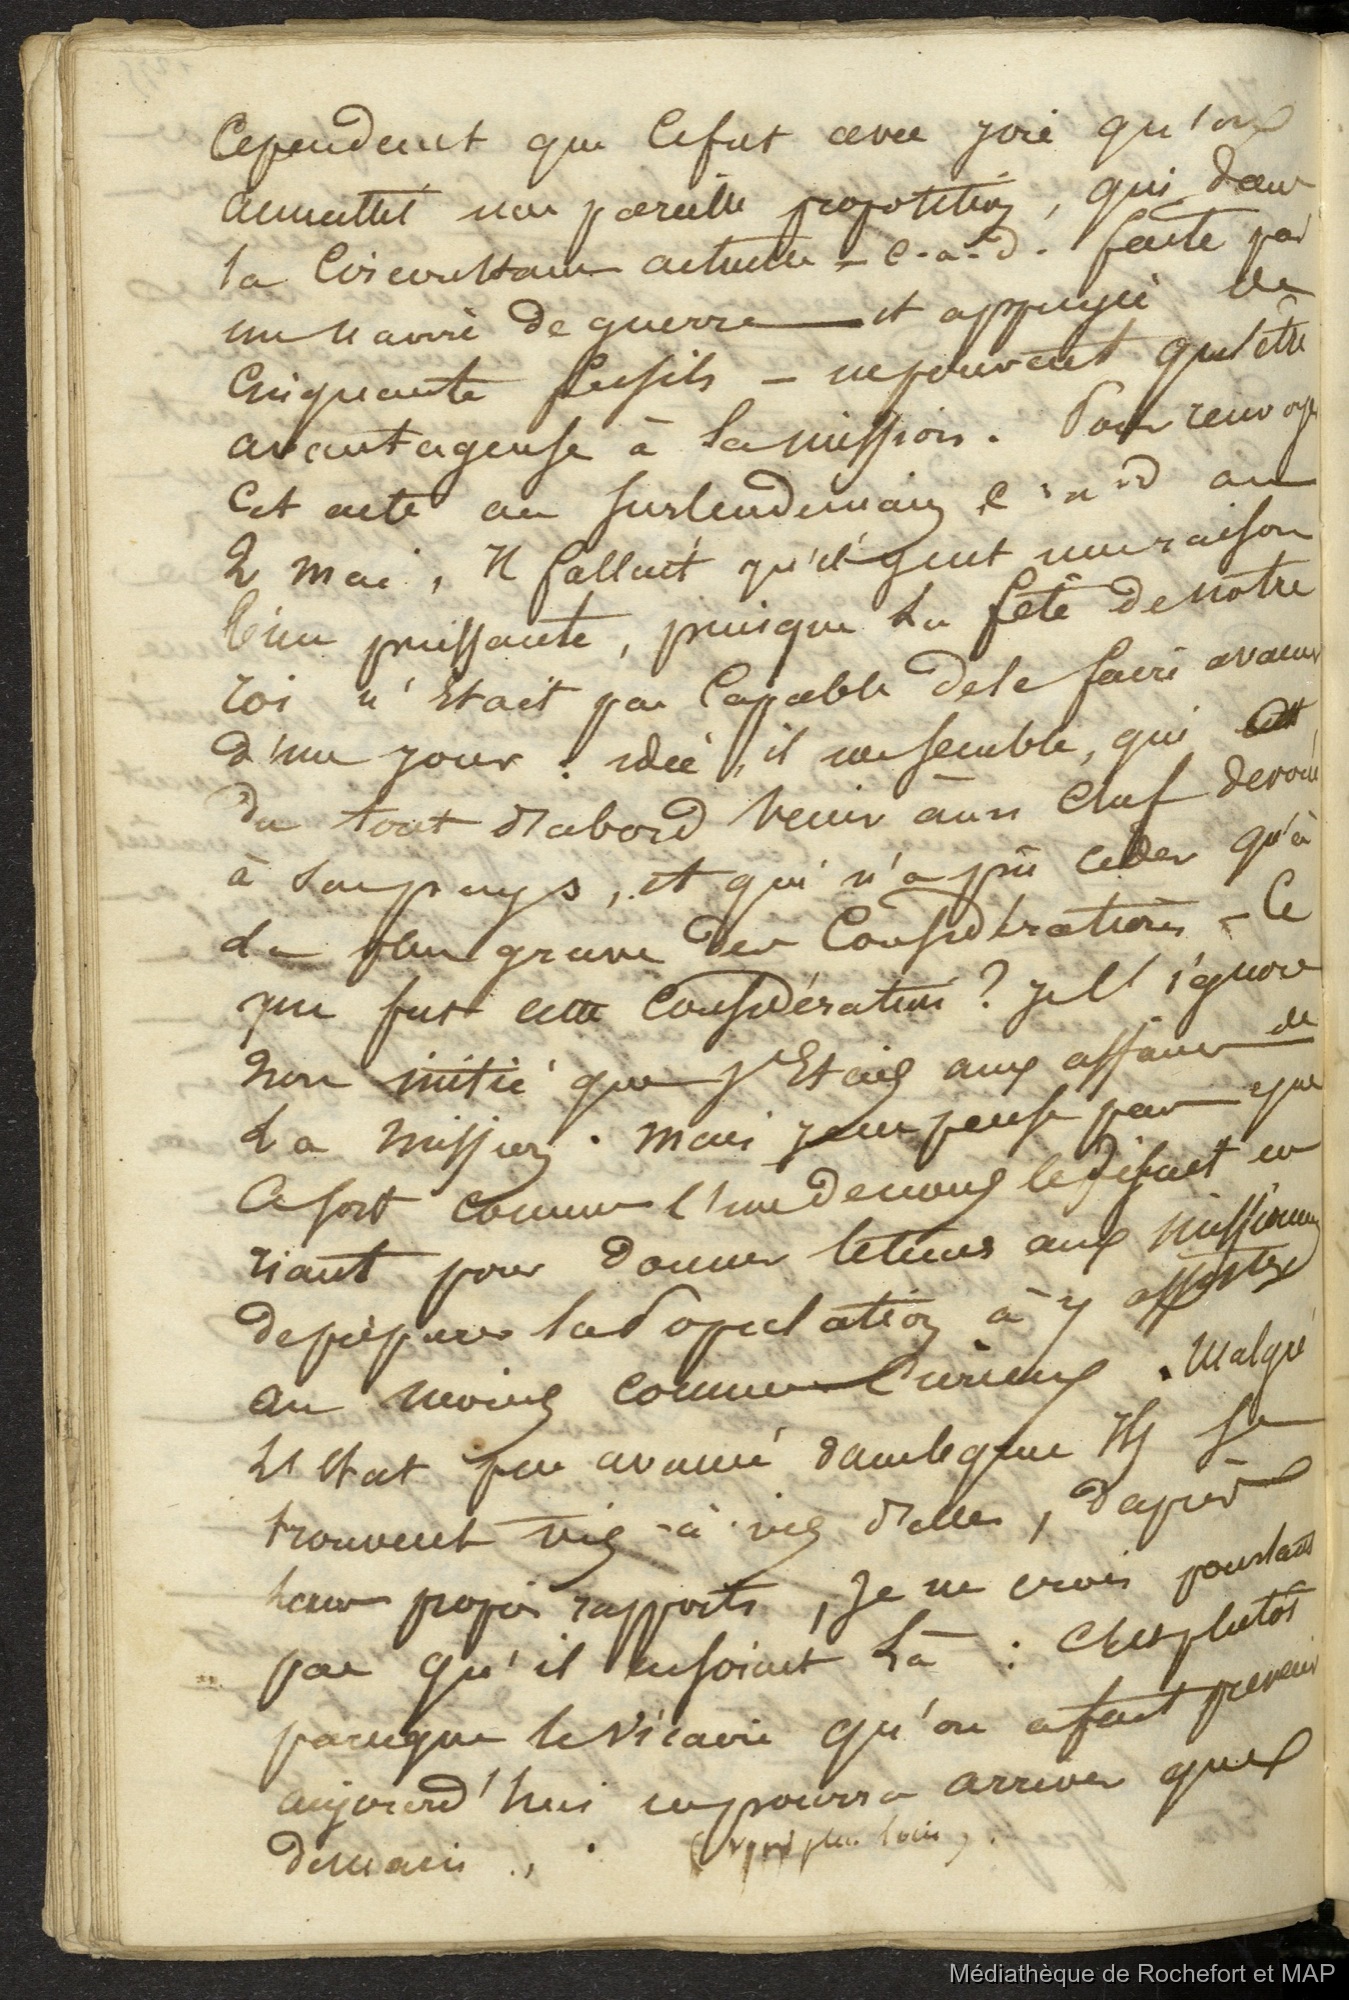 Cependant que ce fut avec joie qu'on
accueillit une pareille proposition, qui dans
la circonstance actuelle - c.-a-d. faite par
un navire de guerre et appuyée de
cinquante fusils - ne pouvait qu'être
avantageuse à la mission. Pour renvoyer
cet acte au surlendemain c-a-d au
2 mai, il fallait qu'il y eut une raison
bien puissante, puisque la fête de notre
roi n'était pas capable de le faire avancer
d'un jour : idée, il me semble, qui
du tout d'abord venir à un chef dévoué
à son pays, et qui n'a pû ceder qu'à
la plus grave des considérations - Ce
que fut cette considération ? je l'ignore
non initié que j'étais aux affaires de
la mission. mais je ne pense pas que
ce soit comme l'un de nous le disait en
riant pour donner le tems aux missionnaires
de préparer la Population à y assister
au moins comme curieux. Malgré
l'état peu avancé dans lequel ils se
trouvent vis-à-vis d'elles, d'après
leurs propres rapports, je ne crois pourtant
pas qu'il en soient là : c'est plutôt
parceque le Vicaire qu'on a fait prévenir
aujourd'hui ne pourra arriver que
demain. (voyez plus loin).
Médiathèque de Rochefort et MAP